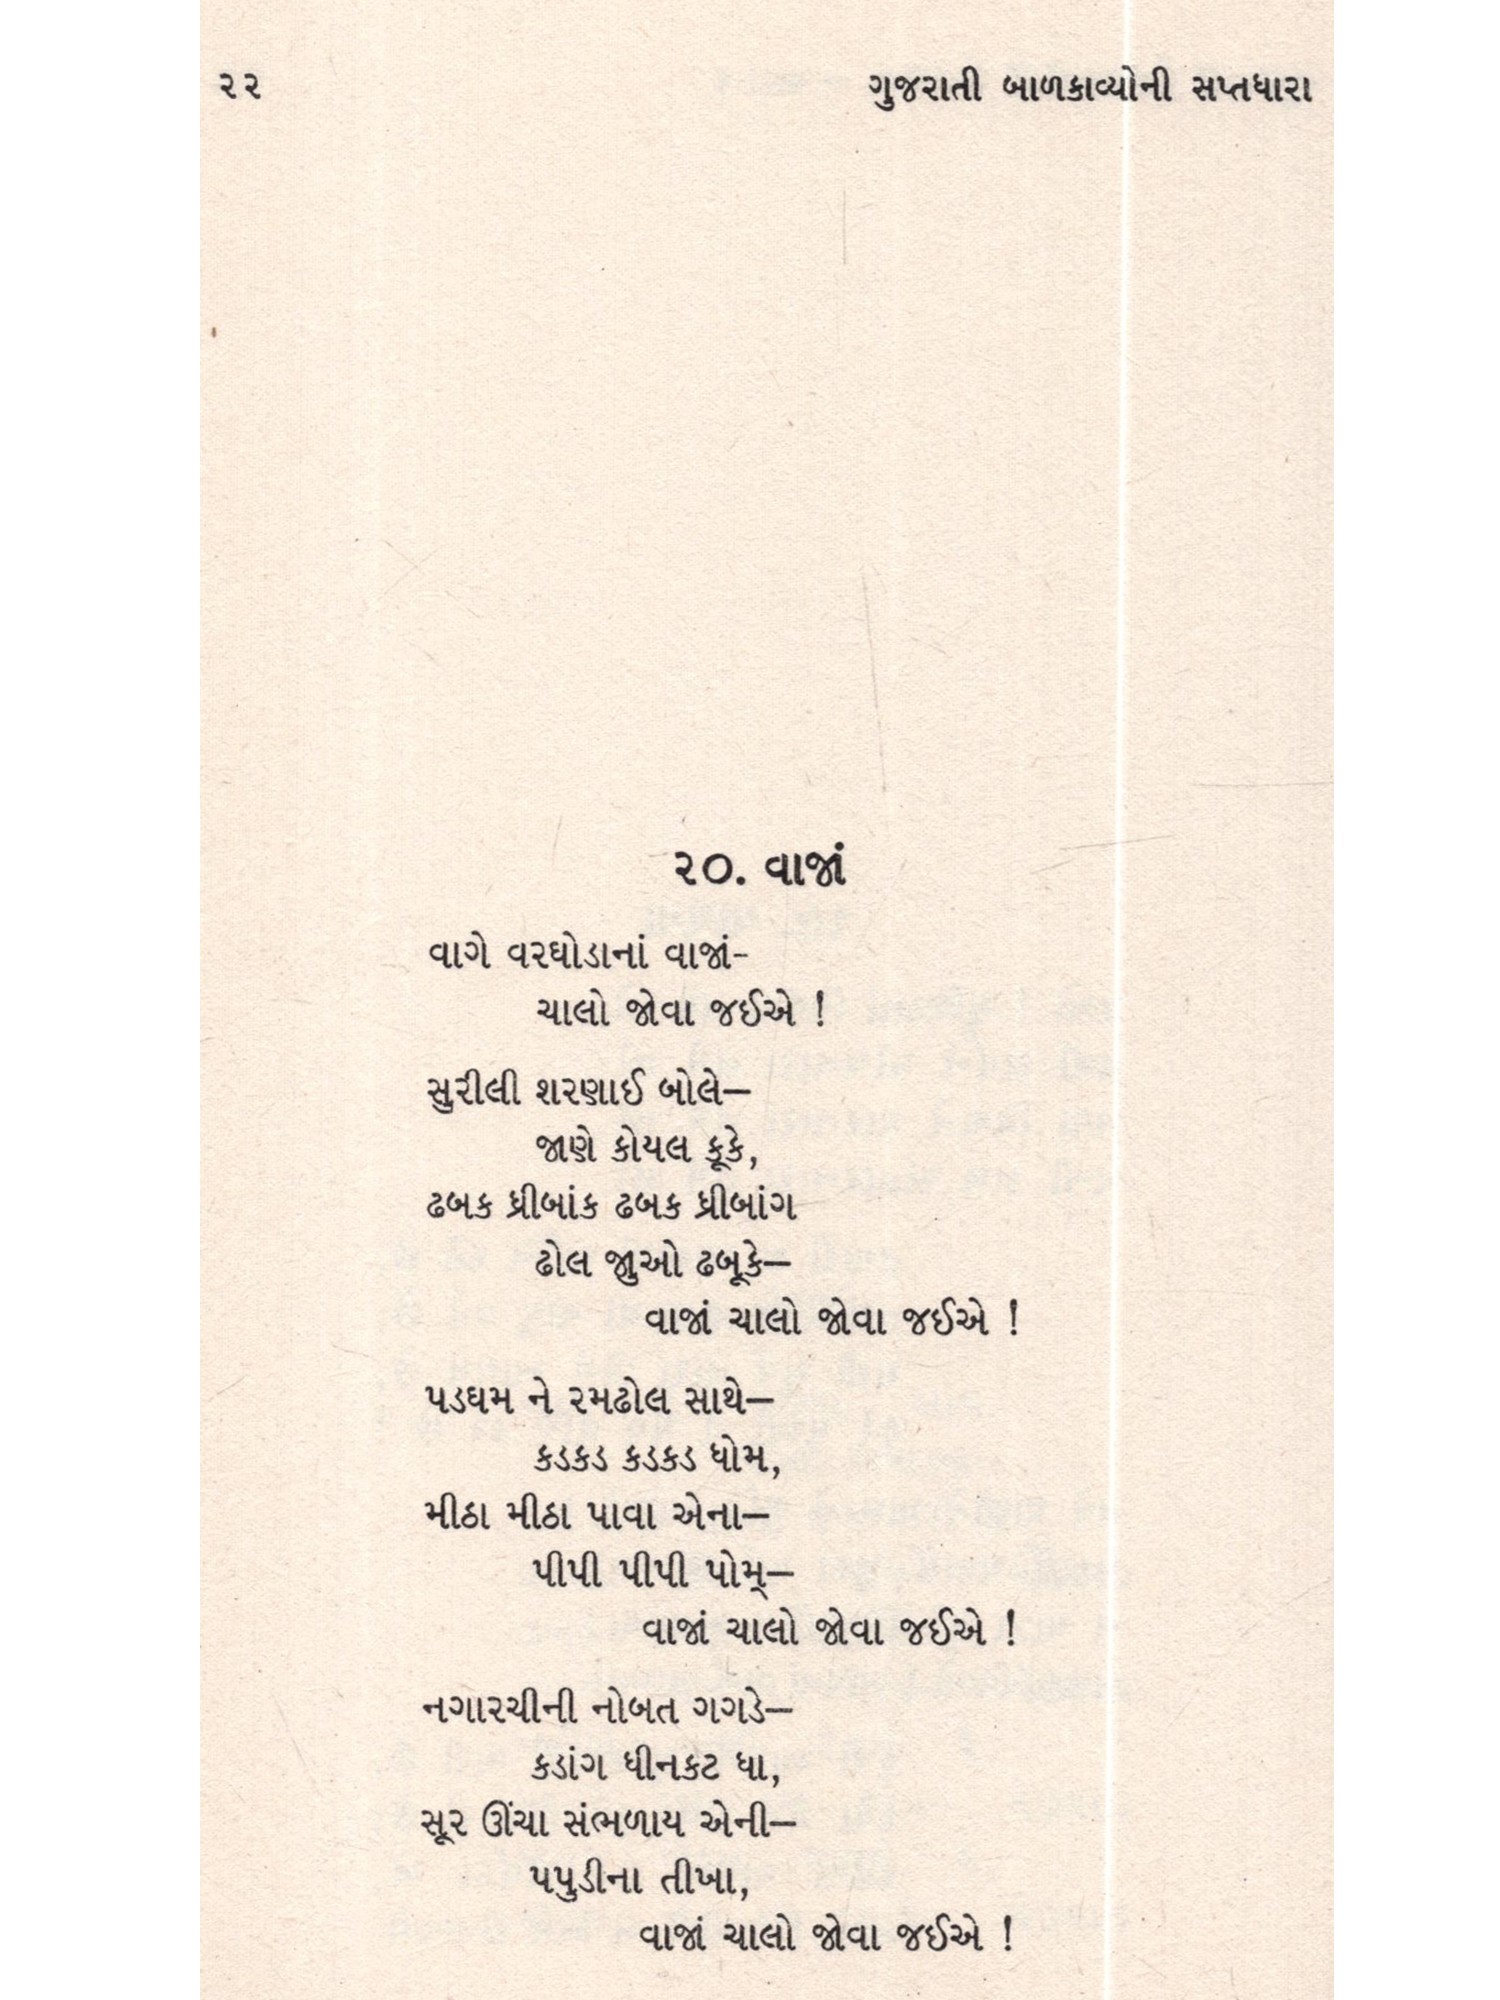 ૨૨ ગુજરાતી બાળકાવ્યોની સપ્તધારા
૨૦. વાજાં
વાગે વરઘોડાનાં વાજાં-
ચાલો જોવા જઈએ !
સુરીલી શરણાઈ બોલે—
જાણે કોયલ કૂકે,
ઢબક ધ્રીબાંક ઢબક ધ્રીબાંગ
ઢોલ જુઓ ઢબૂકે—
વાજાં ચાલો જોવા જઈએ !
પડઘમ ને રમઢોલ સાથે—
કડકડ કડકડ ધોમ,
મીઠા મીઠા પાવા એના—
પીપી પીપી પોમ્—
વાજાં ચાલો જોવા જઈએ !
નગારચીની નોબત ગગડે—
કડાંગ ધીનકટ ધા,
સૂર ઊંચા સંભળાય એની—
પપુડીના તીખા,
વાજાં ચાલો જોવા જઈએ !